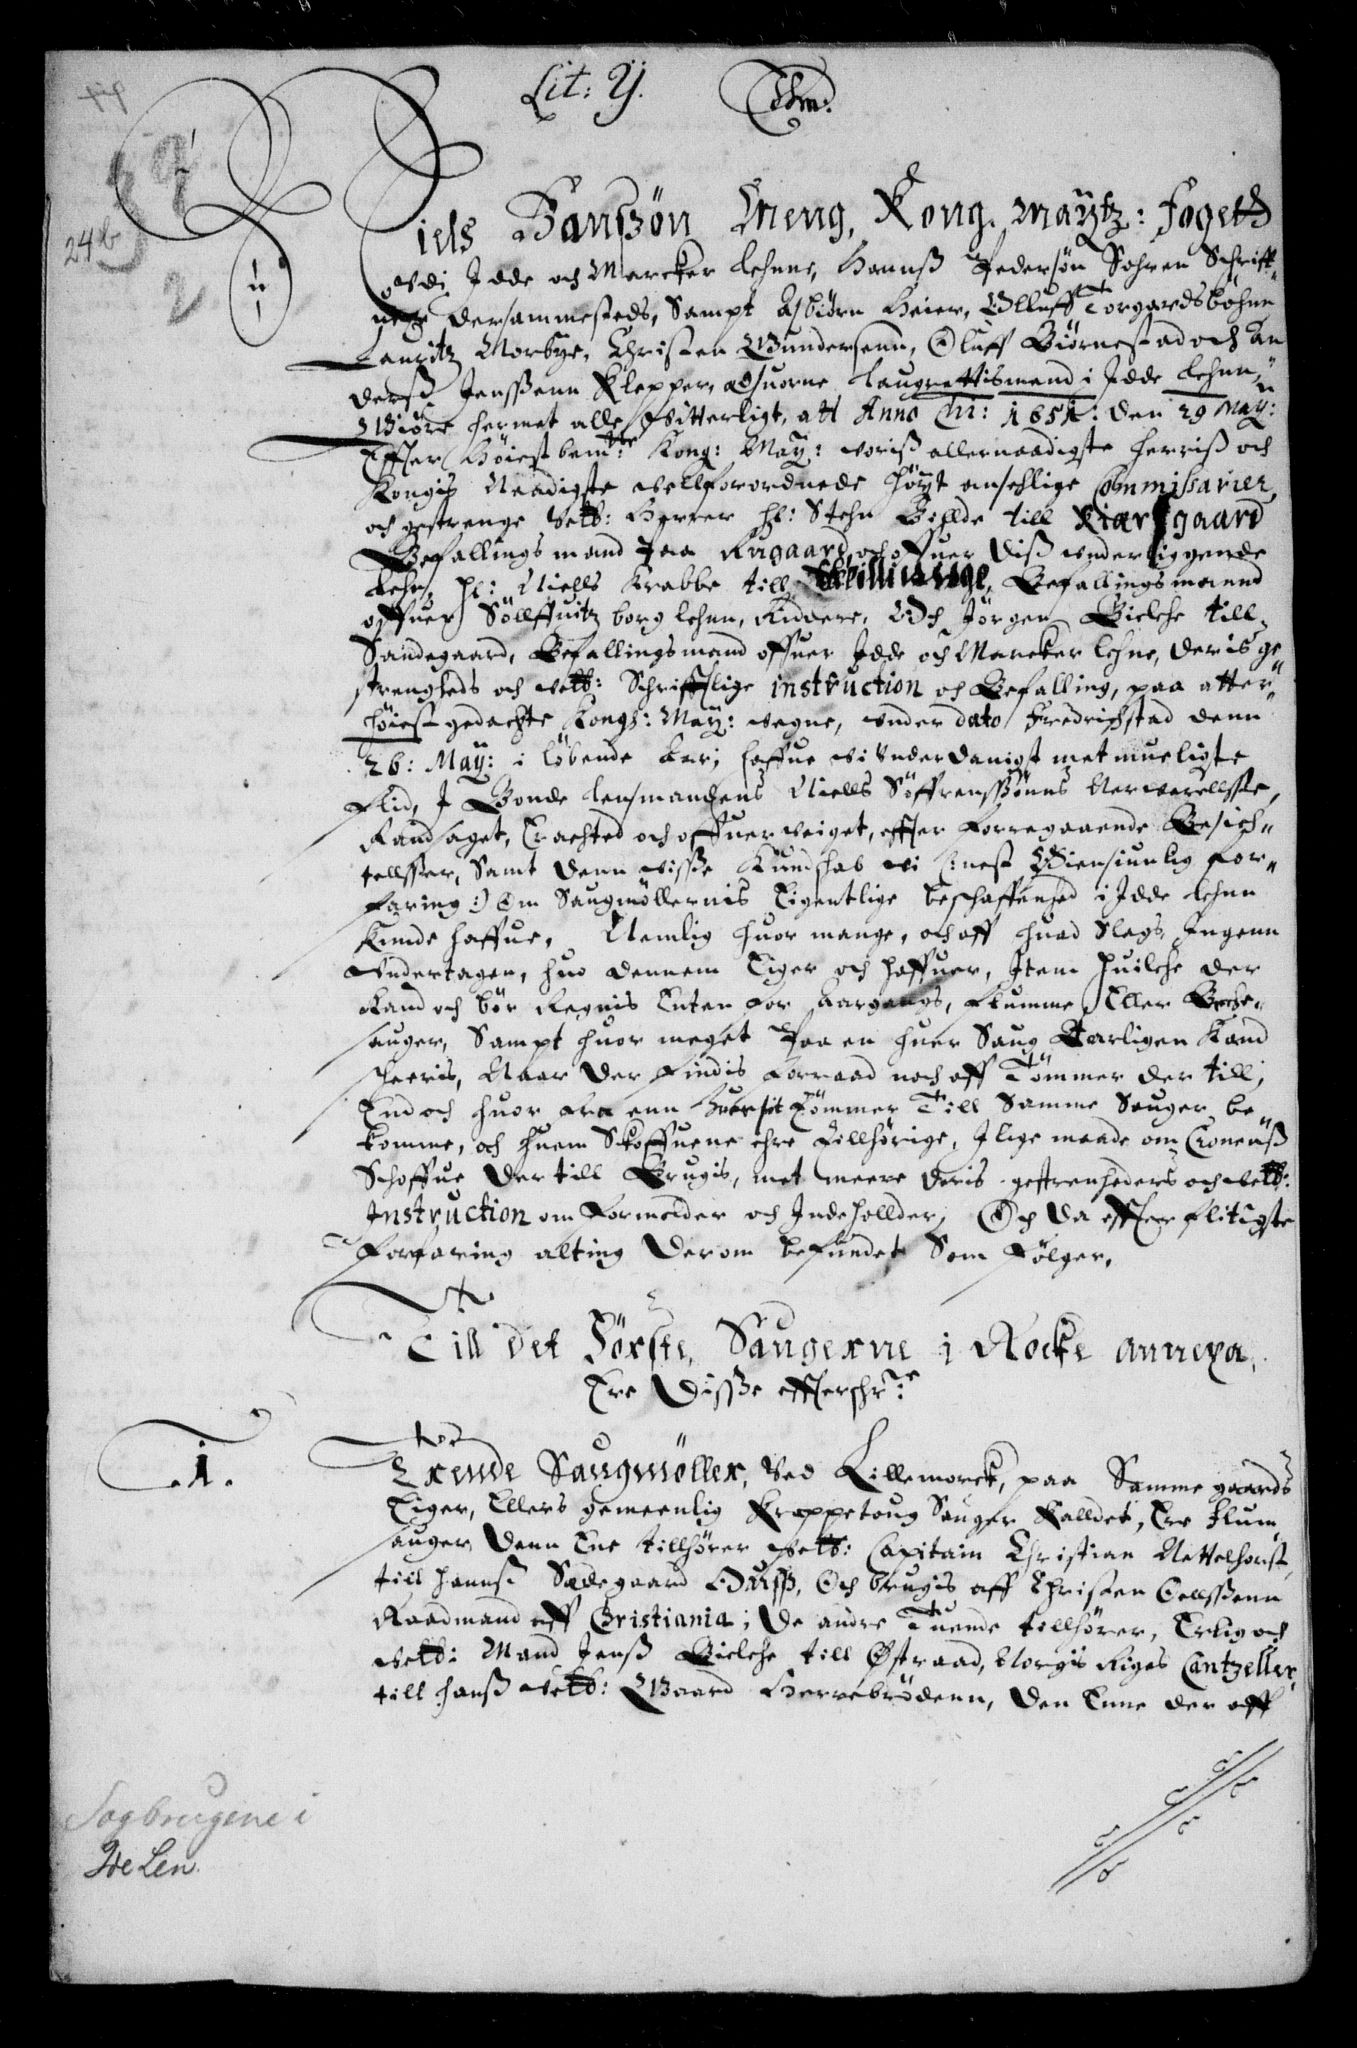 Lit: Y.
24b
Niels Hanszøn Meng, Kong. Maÿtz: Foget
Vdi Idde och Marcker Lehne, Hannsz Pedersøn Sohren Schriff-
uer dersammesteds, Sampt Asbiørn Heier, Olluff Torgaardsbøhne
Lauritz Norbye, Christen Gundersenn, Oluff Biørnestad och An
dersz Jensszenn Klepper, adsuorne Laugrettismend i Idde Lehnn,
Giøre hermet alle Vitterligt, att Anno Chr: 1651: den 29 Maÿ:
Effter Høiest bemte: Kong: Maÿ: vorisz allernaadigste herrisz och
Kongis Naadigste velforordnede høyt anseehlige Commissarier,
och gestrenge Velb: Herrer Hl: Stehn Bihlde till Kiærsgaard
Befallings mand Paa Rugaard, och offuer disz vnderliggende
Lehn, Hl: Niells Krabbe till Skeillinnge, Befallingsmannd
offuer Søllffuitzborg Lehnn, Riddere, Och Jørgen Bielche till
Sandegaard, Befallingsmand offuer Idde och Marcker Lehne, deris ge
strengheds och velb: Schrifftlige instruction och Befalling, paa atter
høiest gedachte Kongs: Maÿ: vegne, vnder dato Fredrichstad denn
26: Maÿ: i løbende Aar; haffue vi Vnderdanigst met mueligste
Flid, I Bonde Lensmandens Niells Søffrensszønns Neruerellsse,
Randsaget, Erachted och offuerveiget, effter Forregaaende Besich-
tellsser, Samt denn visse Kundskab vi (: nest Øiensiunlig For-
faring :) Om Saugmøllernis Eigentlige beschaffenhed i Idde Lehnn
Kunde haffue, Nemlig huor mange, och aff huad Slags, Ingenn
Vndertagen, huo dennem Eiger och haffuer, Item huilche der
Kand och bør Regnis Enten for Aargangs, Flumme, Eller Beche-
sauger, Sampt huor meget Paa en huer Saug Aarligen Kand
scheeris, Naar der Findis Forraad noch aff Tømmer der till,
End och huor fra enn huer sit Tømmer Till Samme Sauger be-
komme, och huem Skoffuene ehre Tillhørige, I lige maade om Cronensz
Schoffue der till Brugis, met meere deris gestrenheders och velb:
Instruction om Formelder och Indehollder, Och da effter flitigste
Forfaring alting derom befundet Som Følger.
Till det Første, Saugerne i Rocke annexa,
Ere Disze effterschr:ne
.1.
Trende Saugmøller, Ved Lillemorck, paa Samme gaards
Eiger, Ellers gemeenlig Krappetoug Sauger Kalldet, Ere Flum
sauger denn Ene tillhører Velb: Capitain Christian Nettelhorst
till hannsz Sædegaard , Och brugis aff Christen Oellsszenn
Raadmand aff Christiania; De andre Tuende tillhører, Erlig och
velb: Mand Jensz Bielche till Østraad, Norgis Riges Cantzeller
till hansz velb: Gaard Herrebrødenn, den Enne der aff
Sagbrugene i
Ide Len.